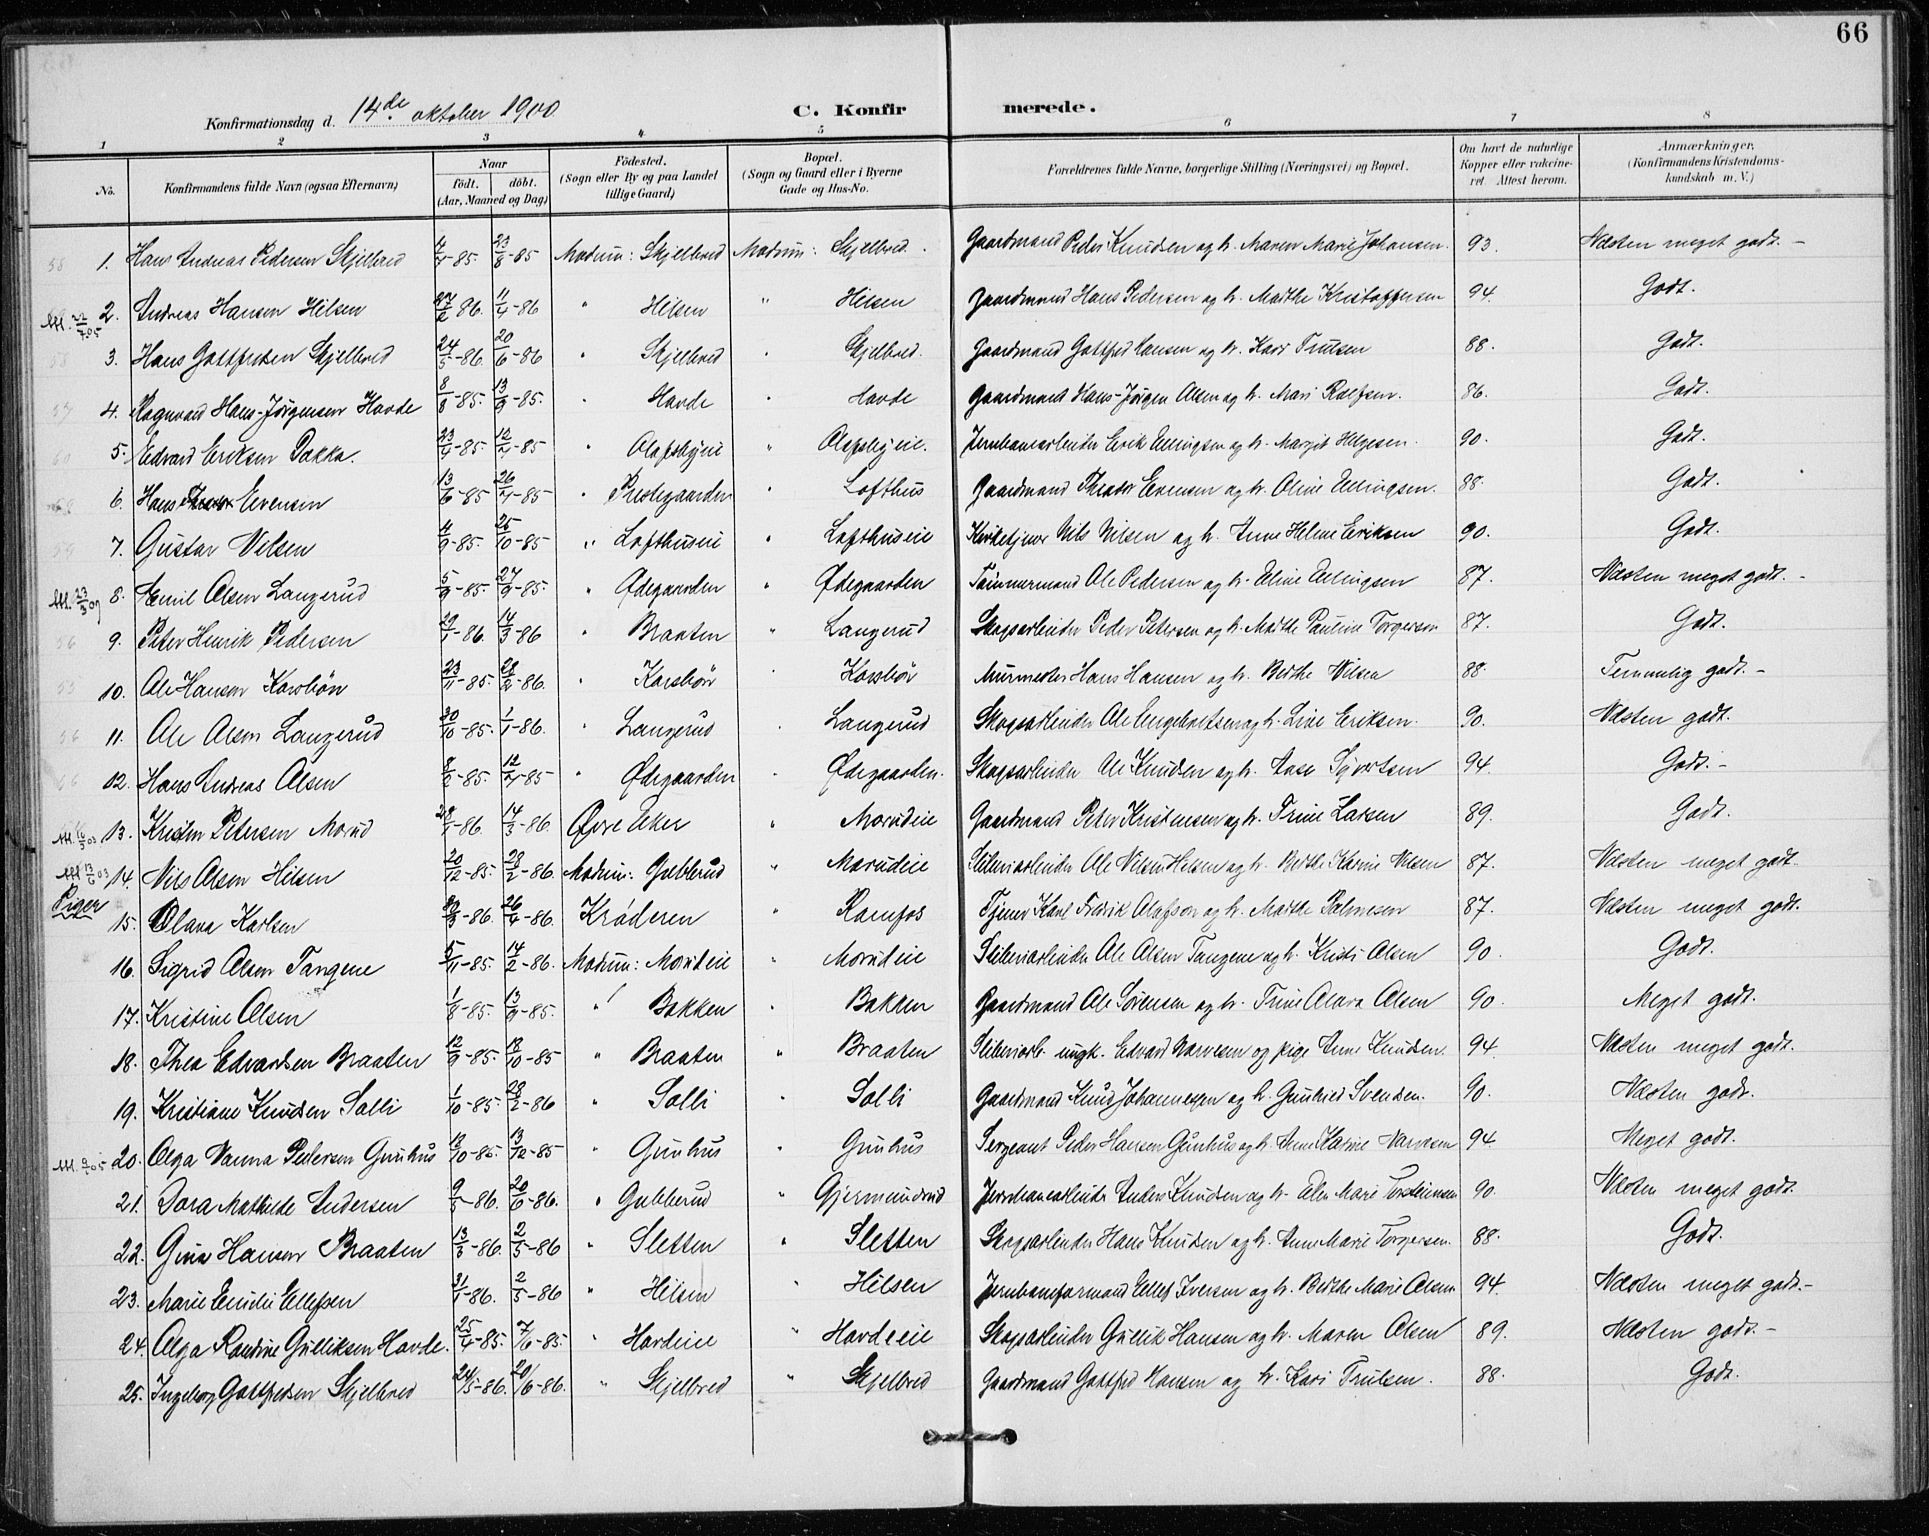 66
Konfirmationsdag d. 14de oktober 1900
C. Konfirmerede.
1 2 3 4 5 6 7 8
No. Konfirmandens fulde Navn (ogsaa Efternavn) Naar födt. döbt. (Aar, Maaned og Dag) Födested. (Sogn eller By og paa Landet tillige Gaard) Bopæl. (Sogn og Gaard eller i Byerne Gade og Hus-No. Forældrenes fulde Navne, borgerlige Stilling (Næringsvei) og Bopæl. Om havt de naturlige Kopper eller vakcineret. Attest herom. Anmærkninger. (Konfirmandens Kristendomskundskab m. V.)
1. Hans Andreas Pedersen Skjelbred 4/4-85. 23/8-85 Modum: Skjelbred Modum: Skjelbred. Gaardmand Peder Knudsen og h. Maren Marie Johansen. 93. Næsten meget godt. -
2. Andreas Hansen Hilsen 27/2 86. 11/4-86 " Hilsen " Hilsen Gaardmand Hans Pedersen og h. Marthe Kristoffersen 94. Godt.
3. Hans Gottfredsen Skjelbred 24/5-86. 20/6-86 " Skjelbred " Skjelbred. Gaardmand Gottfred Hansen og h. Kari Trulsen 88. Godt.
4. Ragnvald Hans-Jørgensen Hovde 8/8-85. 13/9-85. " Hovde " Hovde Gaardmand Hans-Jørgen Olsen og h. Mari Rolfsen. 86. Godt.
5. Edvard Eriksen Dokka. 23/4-85. 12/7-85 " Olafsbyeie " Olafsbyeie. Jernbanearbeider Erik Ellingsen og h. Margit Helgesen. 90. Godt.
6. Hans Evensen 13/6-85 26/7-85 " Prestegaarden " Lofthus Gaardmand Theodor Evensen og h. Oline Ellingsen. 88. Godt.
7. Gustav Nilsen 4/9-85. 25/10-85 " Lofthuseie " Lofthuseie Kirketjener Nils Nilsen og h. Anne Helene Eriksen 90. Godt.
8. Emil Olsen Langerud 5/9-85. 27/9-85. " Ødegaarden " Ødegaarden Tømmermand Ole Pedersen og h. Eline Ellingsen 87. Næsten meget godt. -
9. Peter Henrik Pedersen 29/1-86. 14/3-86 " Braaten " Langerud Skogsarbeider Peder Petersen og h. Marthe Pauline Torgersen 87. Godt.
10. Ole Hansen Korsbøn 23/11-85. 28/2-86. " Korsbøn " Korsbøn Murmester Hans Hansen og h. Berthe Nilsen 88. Temmelig godt. -
11. Ole Olsen Langerud 20/10-85. 1/1-86. " Langerud " Langerud Skogsarbeider Ole Engebretsen og h. Line Eriksen. 90. Næsten godt.
12. Hans Andreas Olsen 8/2-85. 12/4-85 " Ødegaarden " Ødegaarden. Skogsarbeider Ole Knudsen og h. Aase Syvertsen 94. Godt. -
13. Kristen Petersen Morud 28/1-86. 14/3-86. Øvre Eker " Morudeie Gaardmand Peter Kristensen og h. Trine Larsen 89. Godt.
14. Nils Olsen Hilsen 20/12-85. 28/2-86. Modum: Gubberud " Morudeie Sliberiarbeider Ole Nilsen Hilsen og h. Berthe Karine Nilsen 87. Næsten meget godt.
Piger
15. Olava Karlsen 20/3-86. 26/4-86. Krøderen " Ramfos Tjener Karl Fredrik Olafson og h. Marthe Palmesen 87. Næsten meget godt.
16. Sigrid Olsen Tangene 5/11-85. 14/2-86. Modum: Morudeie " Morudeie Sliberiarbeider Ole Olsen Tangene og h. Kristi Olsen 90. Godt.
17. Kristine Olsen 1/8-85. 13/9-85. " Bakken " Bakken Gaardmand Ole Sørensen og h. Trine Olava Olsen 90. Meget godt.
18. Thea Edvardsen Braaten 12/9-85. 18/10-85 " Braaten " Braaten Sliberiarb. ungk. Edvard Narvesen og pige Anne Knudsen. 94. Næsten meget godt.
19. Kristiane Knudsen Solli 1/10-85 28/2-86 " Solli " Solli Gaardmand Knud Johannessen og h. Gunhild Svendsen. 90. Næsten godt.
20. Olga Vanna Pedersen Gunhus 12/10-85. 13/12-85 " Gunhus " Gunhus Sergeant Peder Hansen Gunhus og h. Anne Karine Narvesen 94. Meget godt.
21. Dora Mathilde Andersen 9/5-86. 20/6-86. " Gubberud " Gjermundrud Jernbanearbeider Anders Knudsen og h. Elen Marie Torsteinsen 90. Næsten meget godt.
22. Gina Hansen Braaten 13/3-86. 2/5-86 " Sletten " Sletten Skogsarbeider Hans Knudsen og h. Anne Marie Torgersen. 88. Godt.
23. Marie Emilie Ellefsen 31/1-86. 2/5-86 " Hilsen " Hilsen Jernbaneformand Ellef Iversen og h. Berthe Marie Olsen 94. Næsten meget godt. -
24. Olga Randine Gulliksen Hovde. 25/4-85. 7/6-85. " Hovdeeie " Hovdeeie Skogsarbeider Gullik Hansen og h. Maren Olsen 89. Næsten godt. -
25. Ingeborg Gottfredsen Skjelbred 24/5-86. 20/6-86. " Skjelbred " Skjelbred Gaardmand Gottfred Hansen og h. Kari Trulsen. 88. Godt.